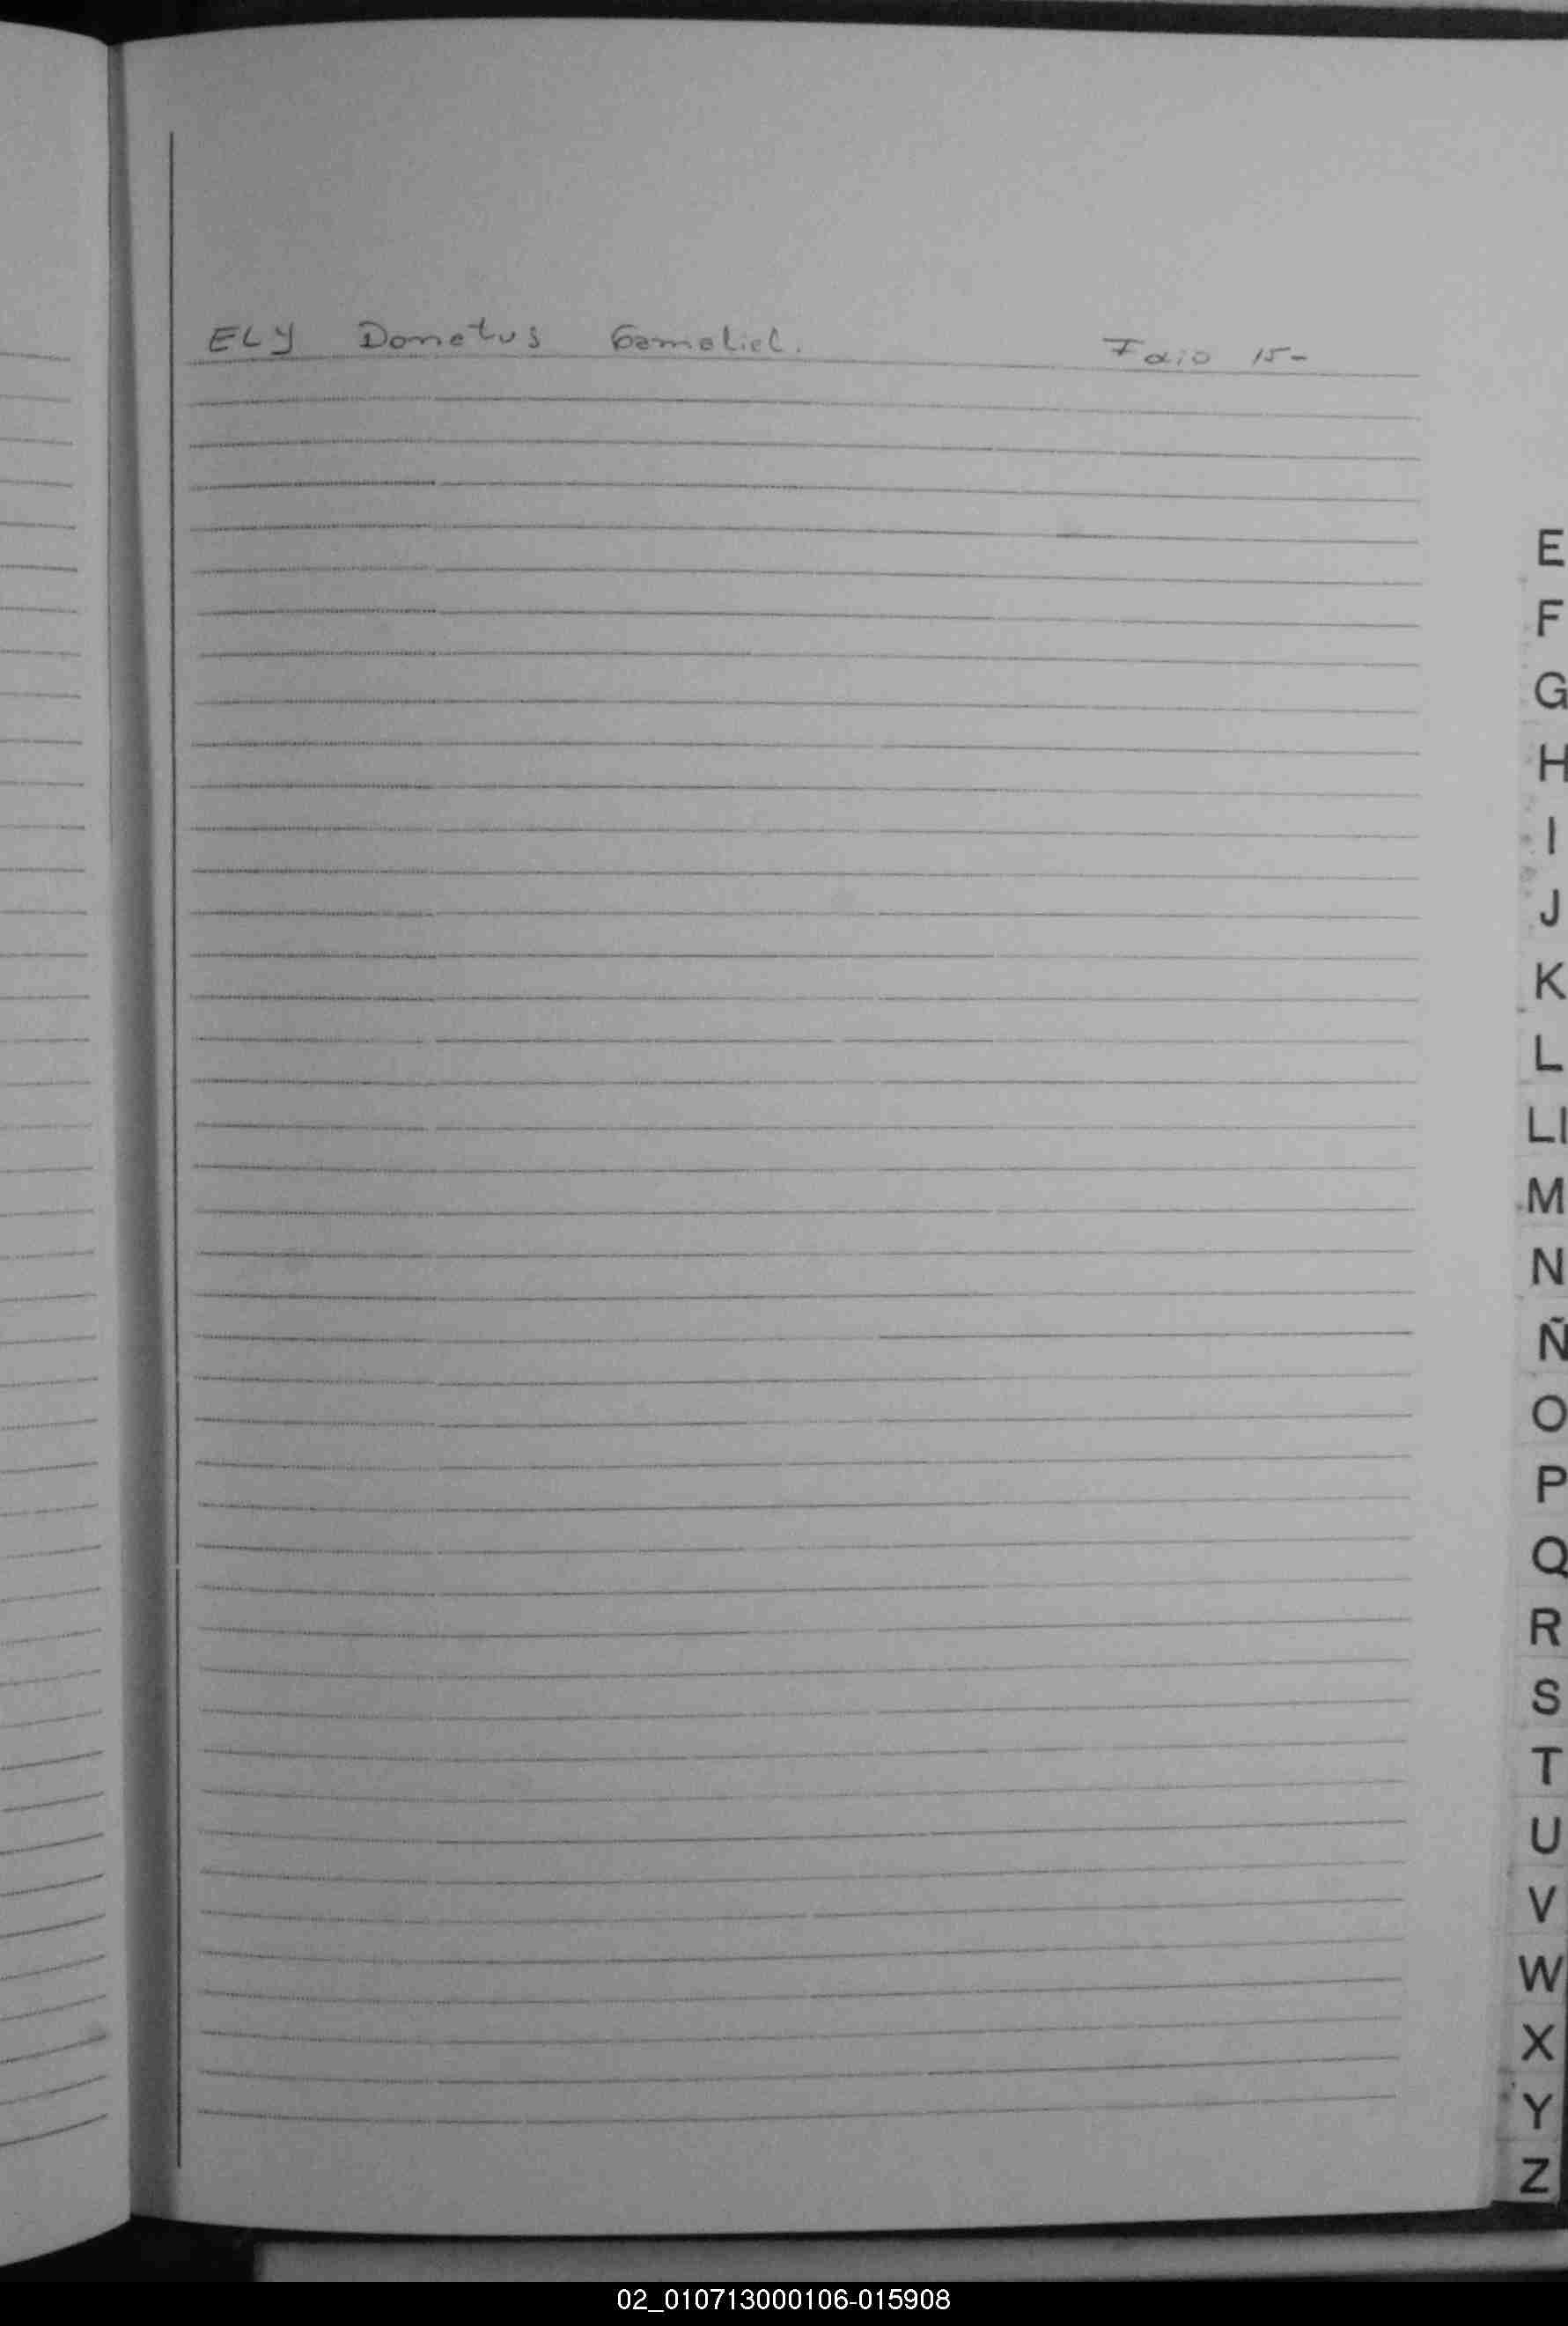 ELY Donatus Gamaliel. Folio 15-
E
F
G
H
I
J
K
L
Ll
M
N
Ñ
O
P
Q
R
S
T
U
V
W
X
Y
Z
02_010713000106-015908